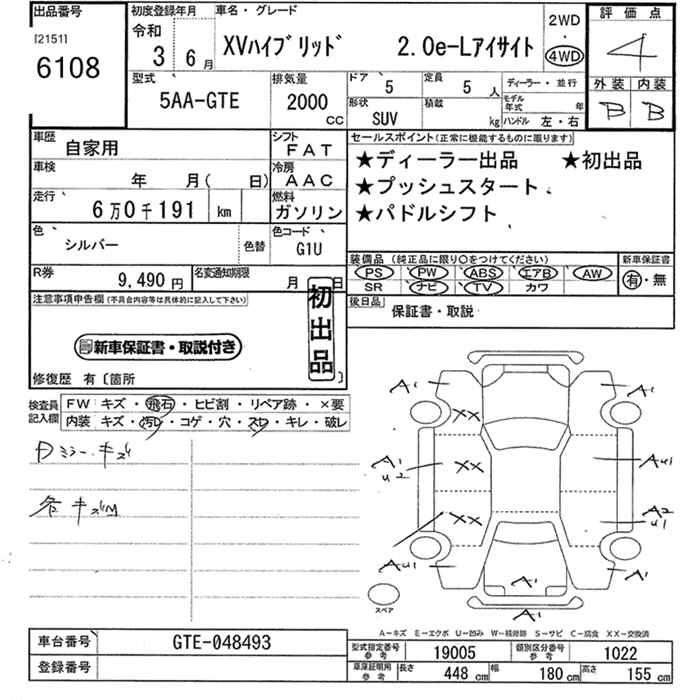 出品番号
[2151]
6108
初度登録年月
令和
3 年 6 月
車名・グレード
XVハイブリッド 2.0e-Lアイサイト
2WD
・
4WD
評価点
4
外装 内装
B B
型式
5AA-GTE
排気量
2000 CC
ドア 5
定員 5 人
形状 SUV
積載 kg
ディーラー・並行
モデル年式 年
ハンドル 左・右
車歴 自家用
シフト FAT
車検 年 月( 日)
冷房 AAC
走行 6万0千191 km
燃料 ガソリン
色 シルバー
色替
色コード G1U
R券 9,490円
名変通知期限 月 日
セールスポイント(正常に機能するものに限ります)
★ディーラー出品 ★初出品
★プッシュスタート
★パドルシフト
装備品(純正品に限り○をつけてください)
PS PW ABS エアB AW
SR ナビ TV カワ
新車保証書
有・無
後日品
保証書・取説
注意事項申告欄(不具合内容等は具体的に記入して下さい)
新車保証書・取説付き
初出品
修復歴 有〔箇所 〕
検査員記入欄
FW キズ・飛石・ヒビ割・リペア跡・×要
内装 キズ・汚レ・コゲ・穴・スレ・キレ・破レ
Dミラーキズ
各キズM
A1 A1
XX
A1 U2 XX AU1
XX A2 U1
AU1 A1 A1
A1
スペア
A-キズ E-エクボ U-凹み W-補修跡 S-サビ C-腐食 XX-交換済
車台番号 GTE-048493
登録番号
型式指定番号 参考 19005
類別区分番号 参考 1022
車庫証明用 参考 長さ 448 cm 幅 180 cm 高さ 155 cm